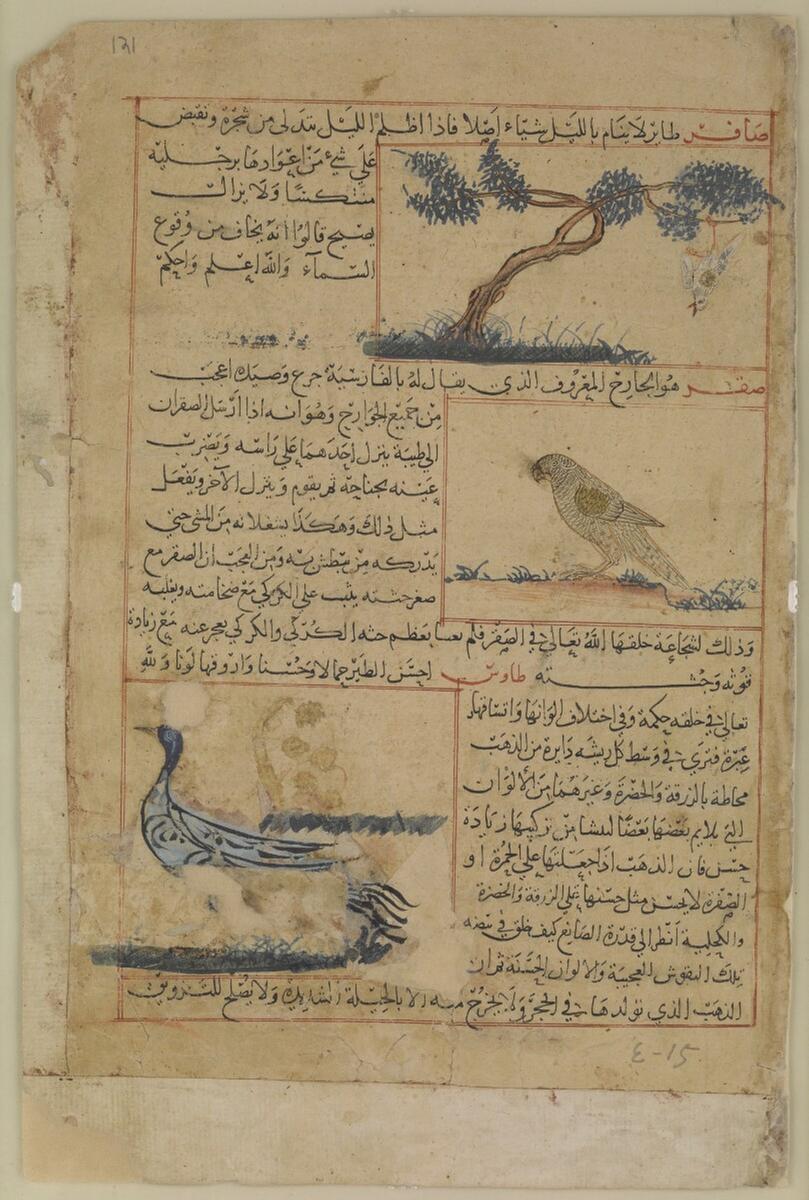 ١٣١
صافر طاير لا ينام بالليل شياء اصلا فاذا اظلم الليل يتدلى من شجرة ويقبض
على شئ من اعوادها برجليه
منتكسًا ولا يزال
يصيح قالوا انه يخاف من وقوع
السماء والله اعلم واحكم
صقر هو الجارح المعروف الذي يقال له بالفارسية جرع وصيده اعجب
من جميع الجوارح وهو انه اذا ارسل الصقران
الى ظبية ينزل احدهما على راسه ويضرب
عينه بجناحه ثم يقوم وينزل الآخر ويفعل
مثل ذلك وهكذا يشغلانه من المشي حتي
يدركه من يبطش به ومن العجب ان الصقر مع
صغر جثته يثب على الكركي مع ضخامته ويغلبه
وذلك لشجاعة خلقها الله تعالى في الصقر فلم يعبا بعظم جثه الكركي والكركي يعجز عنه مع زيادة
قوته وجثته طاوس احسن الطير جمالا وحسنا وادوقها لونا ولله
تعالى في خلقه حكمة وفي اختلاف الوانها واتساقها
عبرة فترى في وسط كل ريشه دايرة من الذهب
محاطة بالزرقة والخضرة وغيرهما من الالوان
التي يلايم بعضها بعضًا لينشا من تركيبها زيادة
حسن فان الذهب اذا جعلتها على الحمرة او
الصفرة لا يحسن مثل حسنها على الزرقة والخضرة
والكحلية انظر الى قدرة الصانع كيف خلق في بيضه
تلك النقوش العجيبة والالوان الحسنة ثم ان
الذهب الذي تولدها في الحجر ولا يخرج منه الا بالحيلة الشديدة ولا يصلح للتزويق
E-15